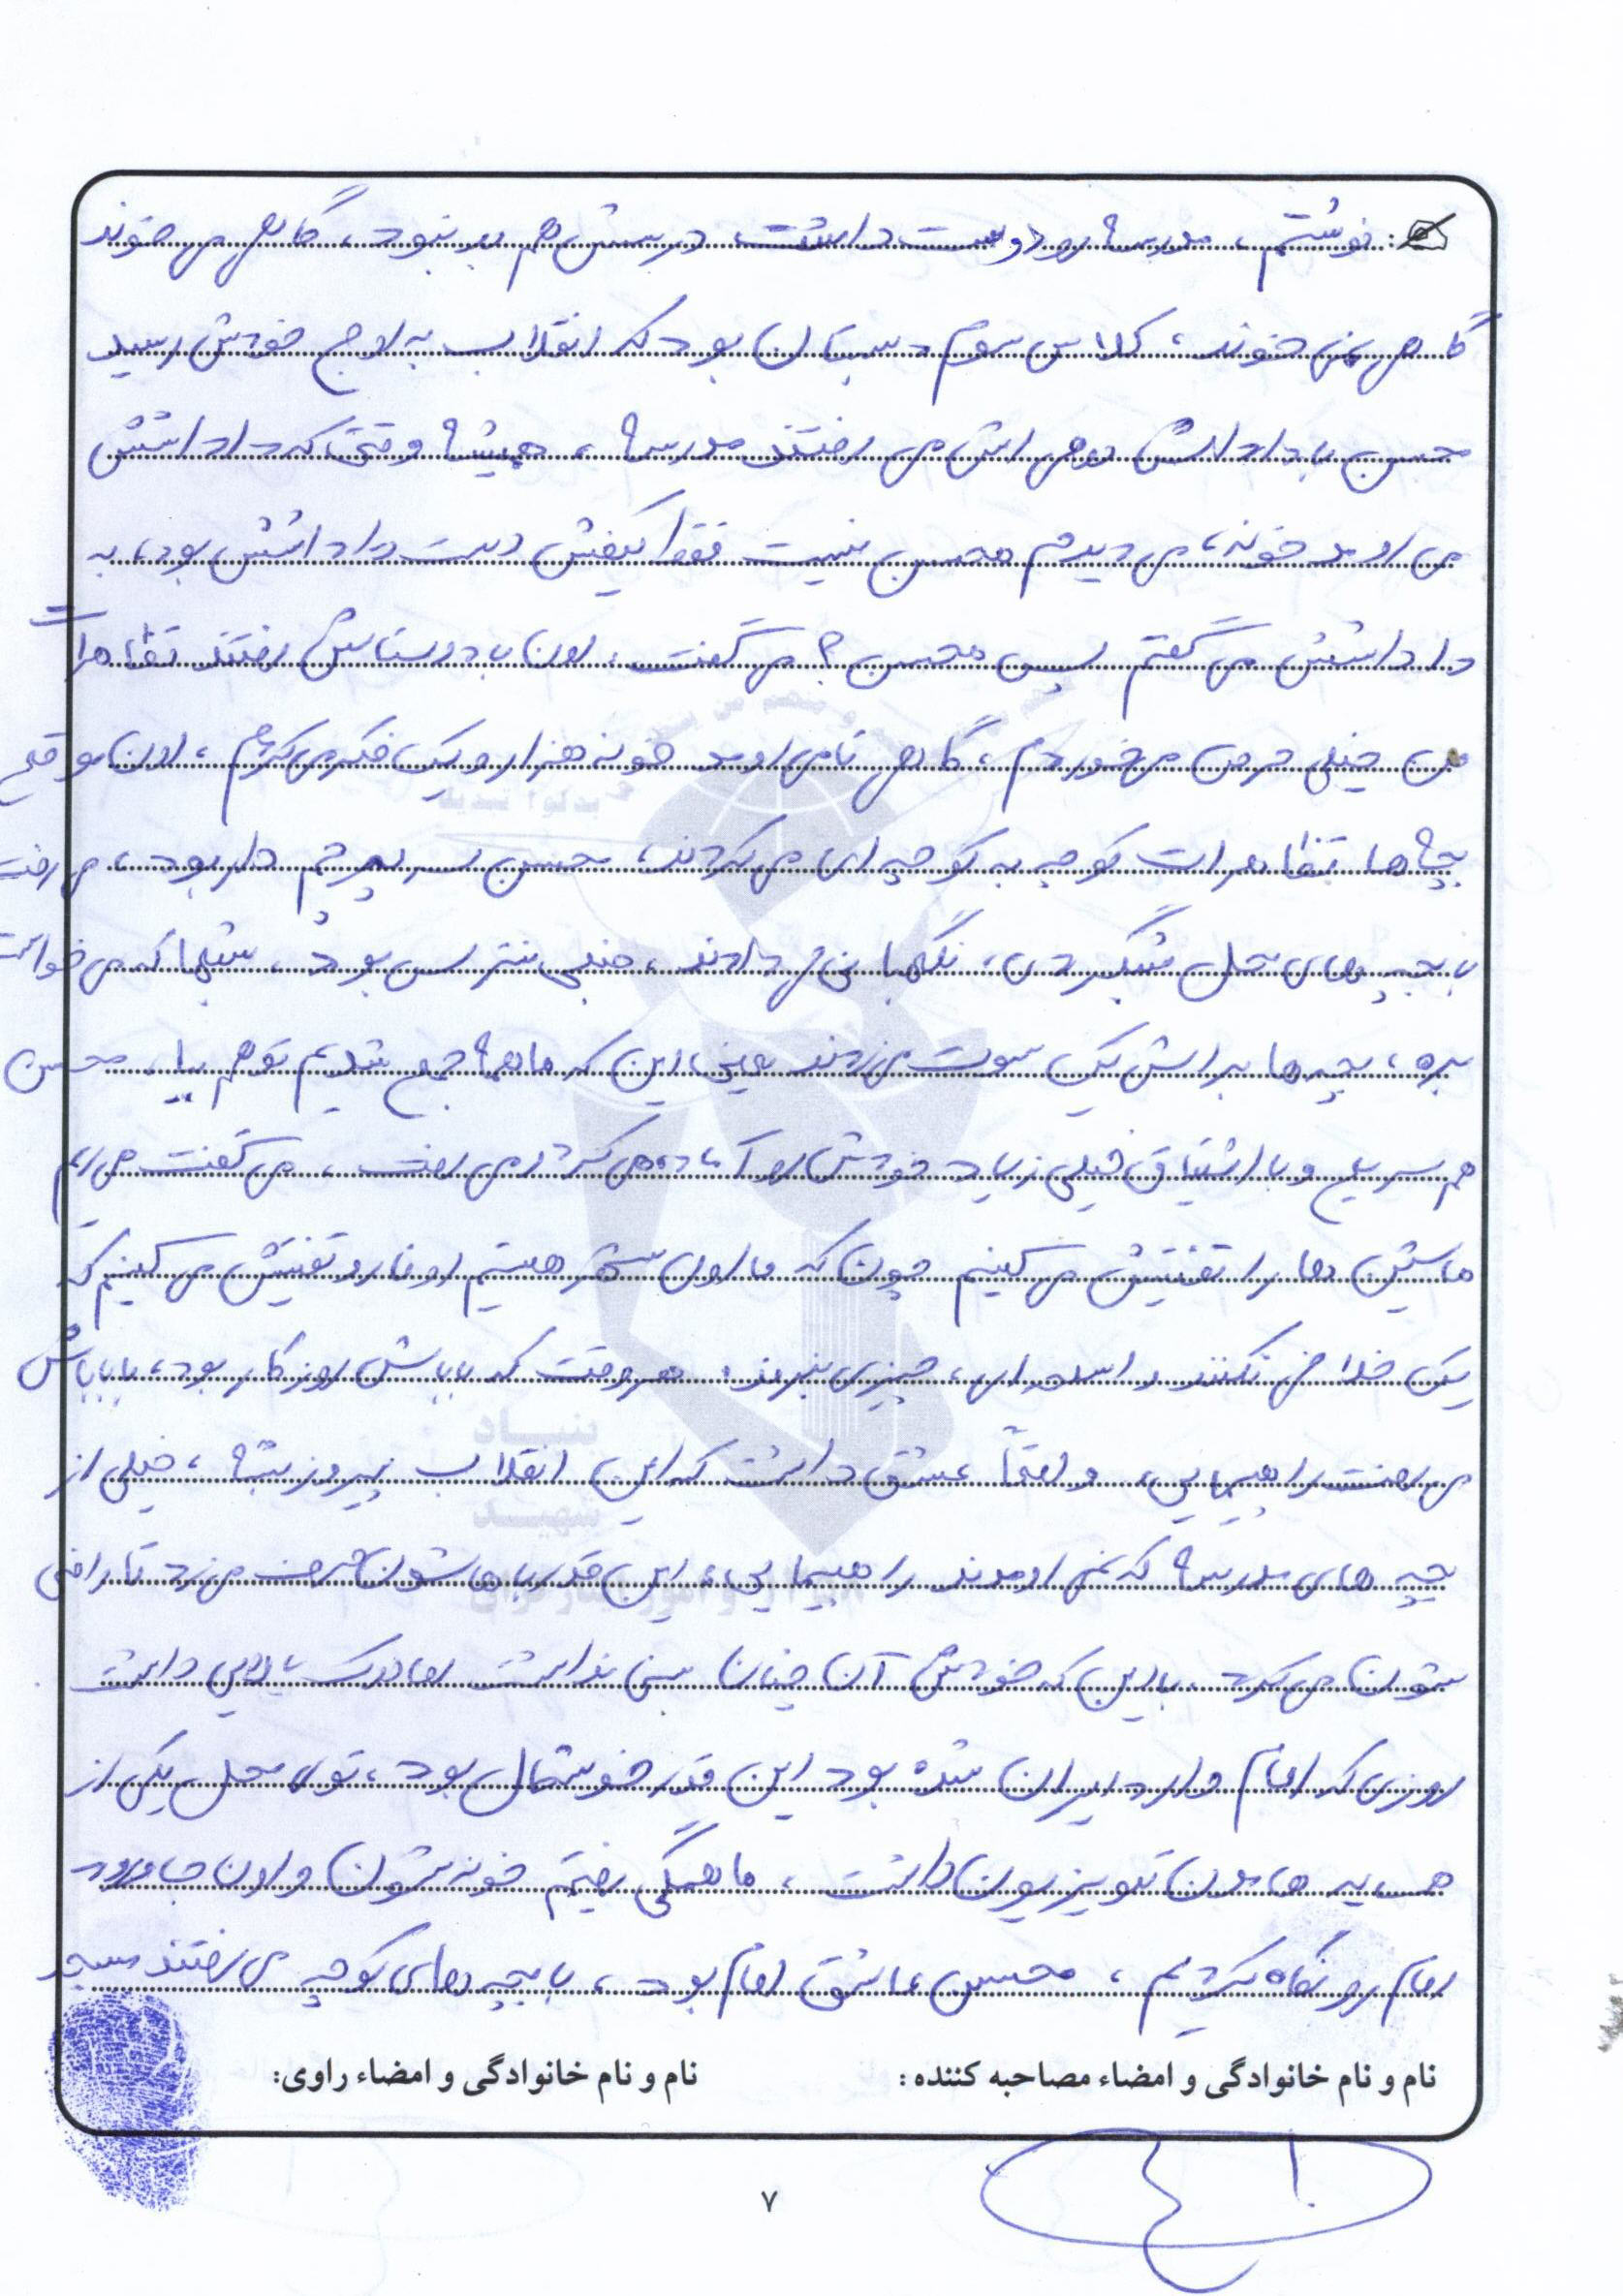 نوشتم، مدرسه رو دوست داشت، درسش هم بد نبود، گاهی می خوند
گاهی نمی خوند، کلاس سوم دبستان بود که انقلاب به اوج خودش رسید
محسن با داداش هاش می رفتند مدرسه، همیشه وقتی که داداشش
می اومد خونه، می دیدم محسن نیست فقط کیفش دست داداشش بود، به
داداشش می گفتم پس محسن؟ می گفت، اون با دوستاش رفتند تظاهرات
من خیلی حرص می خوردم، گاهی تا می اومد خونه هزار و یک فکر می کردم، اون موقع
بچه ها تظاهرات کوچه به کوچه ای می کردند، محسن سر پرچم دار بود، می رفت
با بچه های محل شبگردی، نگهبانی می دادند، خیلی نترس بود، شبها که می خواست
بره، بچه ها براش یک سوت می زدند یعنی این که ما همه جمع شدیم تو هم بیا، محسن
هم سریع و با اشتیاق خیلی زیاد خودش رو آماده می کرد و می رفت، می گفت می ریم
ماشین ها را تفتیش می کنیم چون که ما اون ستمر هستیم اونا رو تفتیش می کنیم که
یک خلافی نکنند و اسلحه ای، چیزی نبرند. هر وقت که باباش روز کار بود، با باباش
می رفت راهپیمایی، واقعاً عشق داشت که این انقلاب پیروز بشه، خیلی از
بچه های مدرسه که نمی اومدند راهپیمایی، این قدر باهاشون حرف می زد تا راضی
شون می کرد، با این که خودش آن چنان سنی نداشت اما درک بالایی داشت
روزی که امام وارد ایران شده بود این قدر خوشحال بود، توی محل یکی از
همسایه هامون تلویزیون داشت، ما همگی رفتیم خونه شون و اون جا ورود
امام رو نگاه کردیم، محسن عاشق امام بود، با بچه های کوچه می رفتند مسجد
نام و نام خانوادگی و امضاء مصاحبه کننده: نام و نام خانوادگی و امضاء راوی:
۷